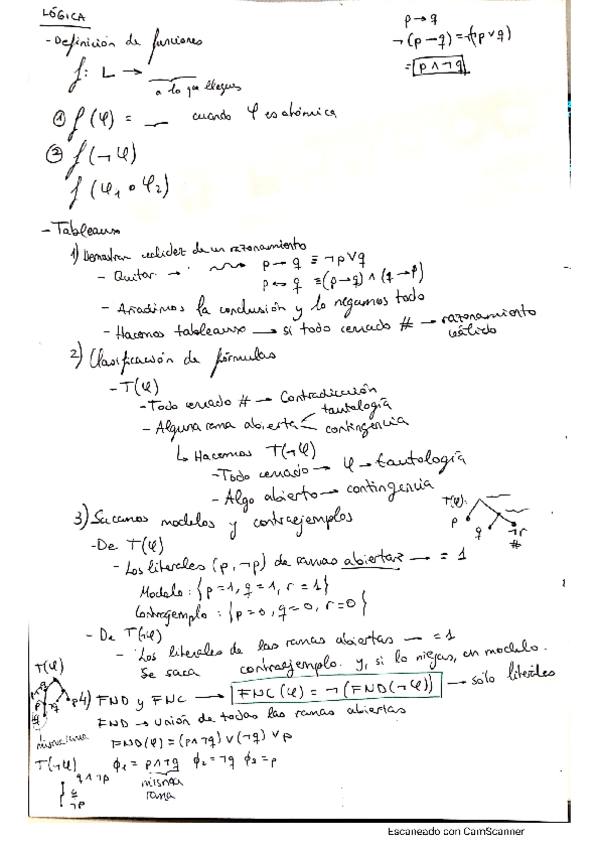 LÓGICA
p → q
- Definición de funciones
¬(p → q) = ¬(¬p ∨ q)
f: L → ___
= p ∧ ¬q
a lo que llegues
① f(φ) = __ cuando φ es atómica
② f(¬φ)
f(φ1 ∘ φ2)
- Tableaux
1) Demostrar validez de un razonamiento
- Quitar → p → q ≡ ¬p ∨ q
p ↔ q ≡ (p → q) ∧ (q → p)
- Añadimos la conclusión y lo negamos todo
- Hacemos tableaux → si todo cerrado # → razonamiento
válido
2) Clasificación de fórmulas
- T(φ)
- Todo cerrado # → Contradicción
- Alguna rama abierta tautología
contingencia
↳ Hacemos T(¬φ)
- Todo cerrado → φ → tautología
- Algo abierto → contingencia
3) Sacamos modelos y contraejemplos
T(φ):
p
q
¬r
#
- De T(φ)
- Los literales (p, ¬p) de ramas abiertas — = 1
Modelo: {p = 1, q = 1, r = 1}
Contraejemplo: {p = 0, q = 0, r = 0}
- De T(¬φ)
- Los literales de las ramas abiertas — = 1
Se saca contraejemplo. y, si lo niegas, en modelo.
T(φ)
4) FND y FNC → FNC(φ) = ¬(FND(¬φ)) → sólo literales
FND → unión de todas las ramas abiertas
misma rama
FND(φ) = (p ∧ ¬q) ∨ (¬q) ∨ p
T(¬φ)
ϕ1 = p ∧ ¬q ϕ2 = ¬q ϕ3 = p
q ∧ ¬p
misma
rama
q
¬p
Escaneado con CamScanner